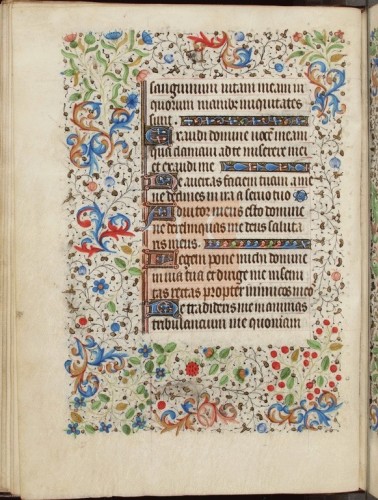 sanguinum vitam meam in
quorum manibus iniquitates
sunt.
Exaudi domine vocem meam
qua clamavi ad te miserere mei
et exaudi me
Ne avertas faciem tuam a me
ne declines in ira a servo tuo
Adiutor meus esto domine
ne derelinquas me deus saluta
ris meus.
Legem pone michi domine
in via tua et dirige me in semi
tas rectas propter inimicos meos
Ne tradideris me in animas
tribulantium me quoniam